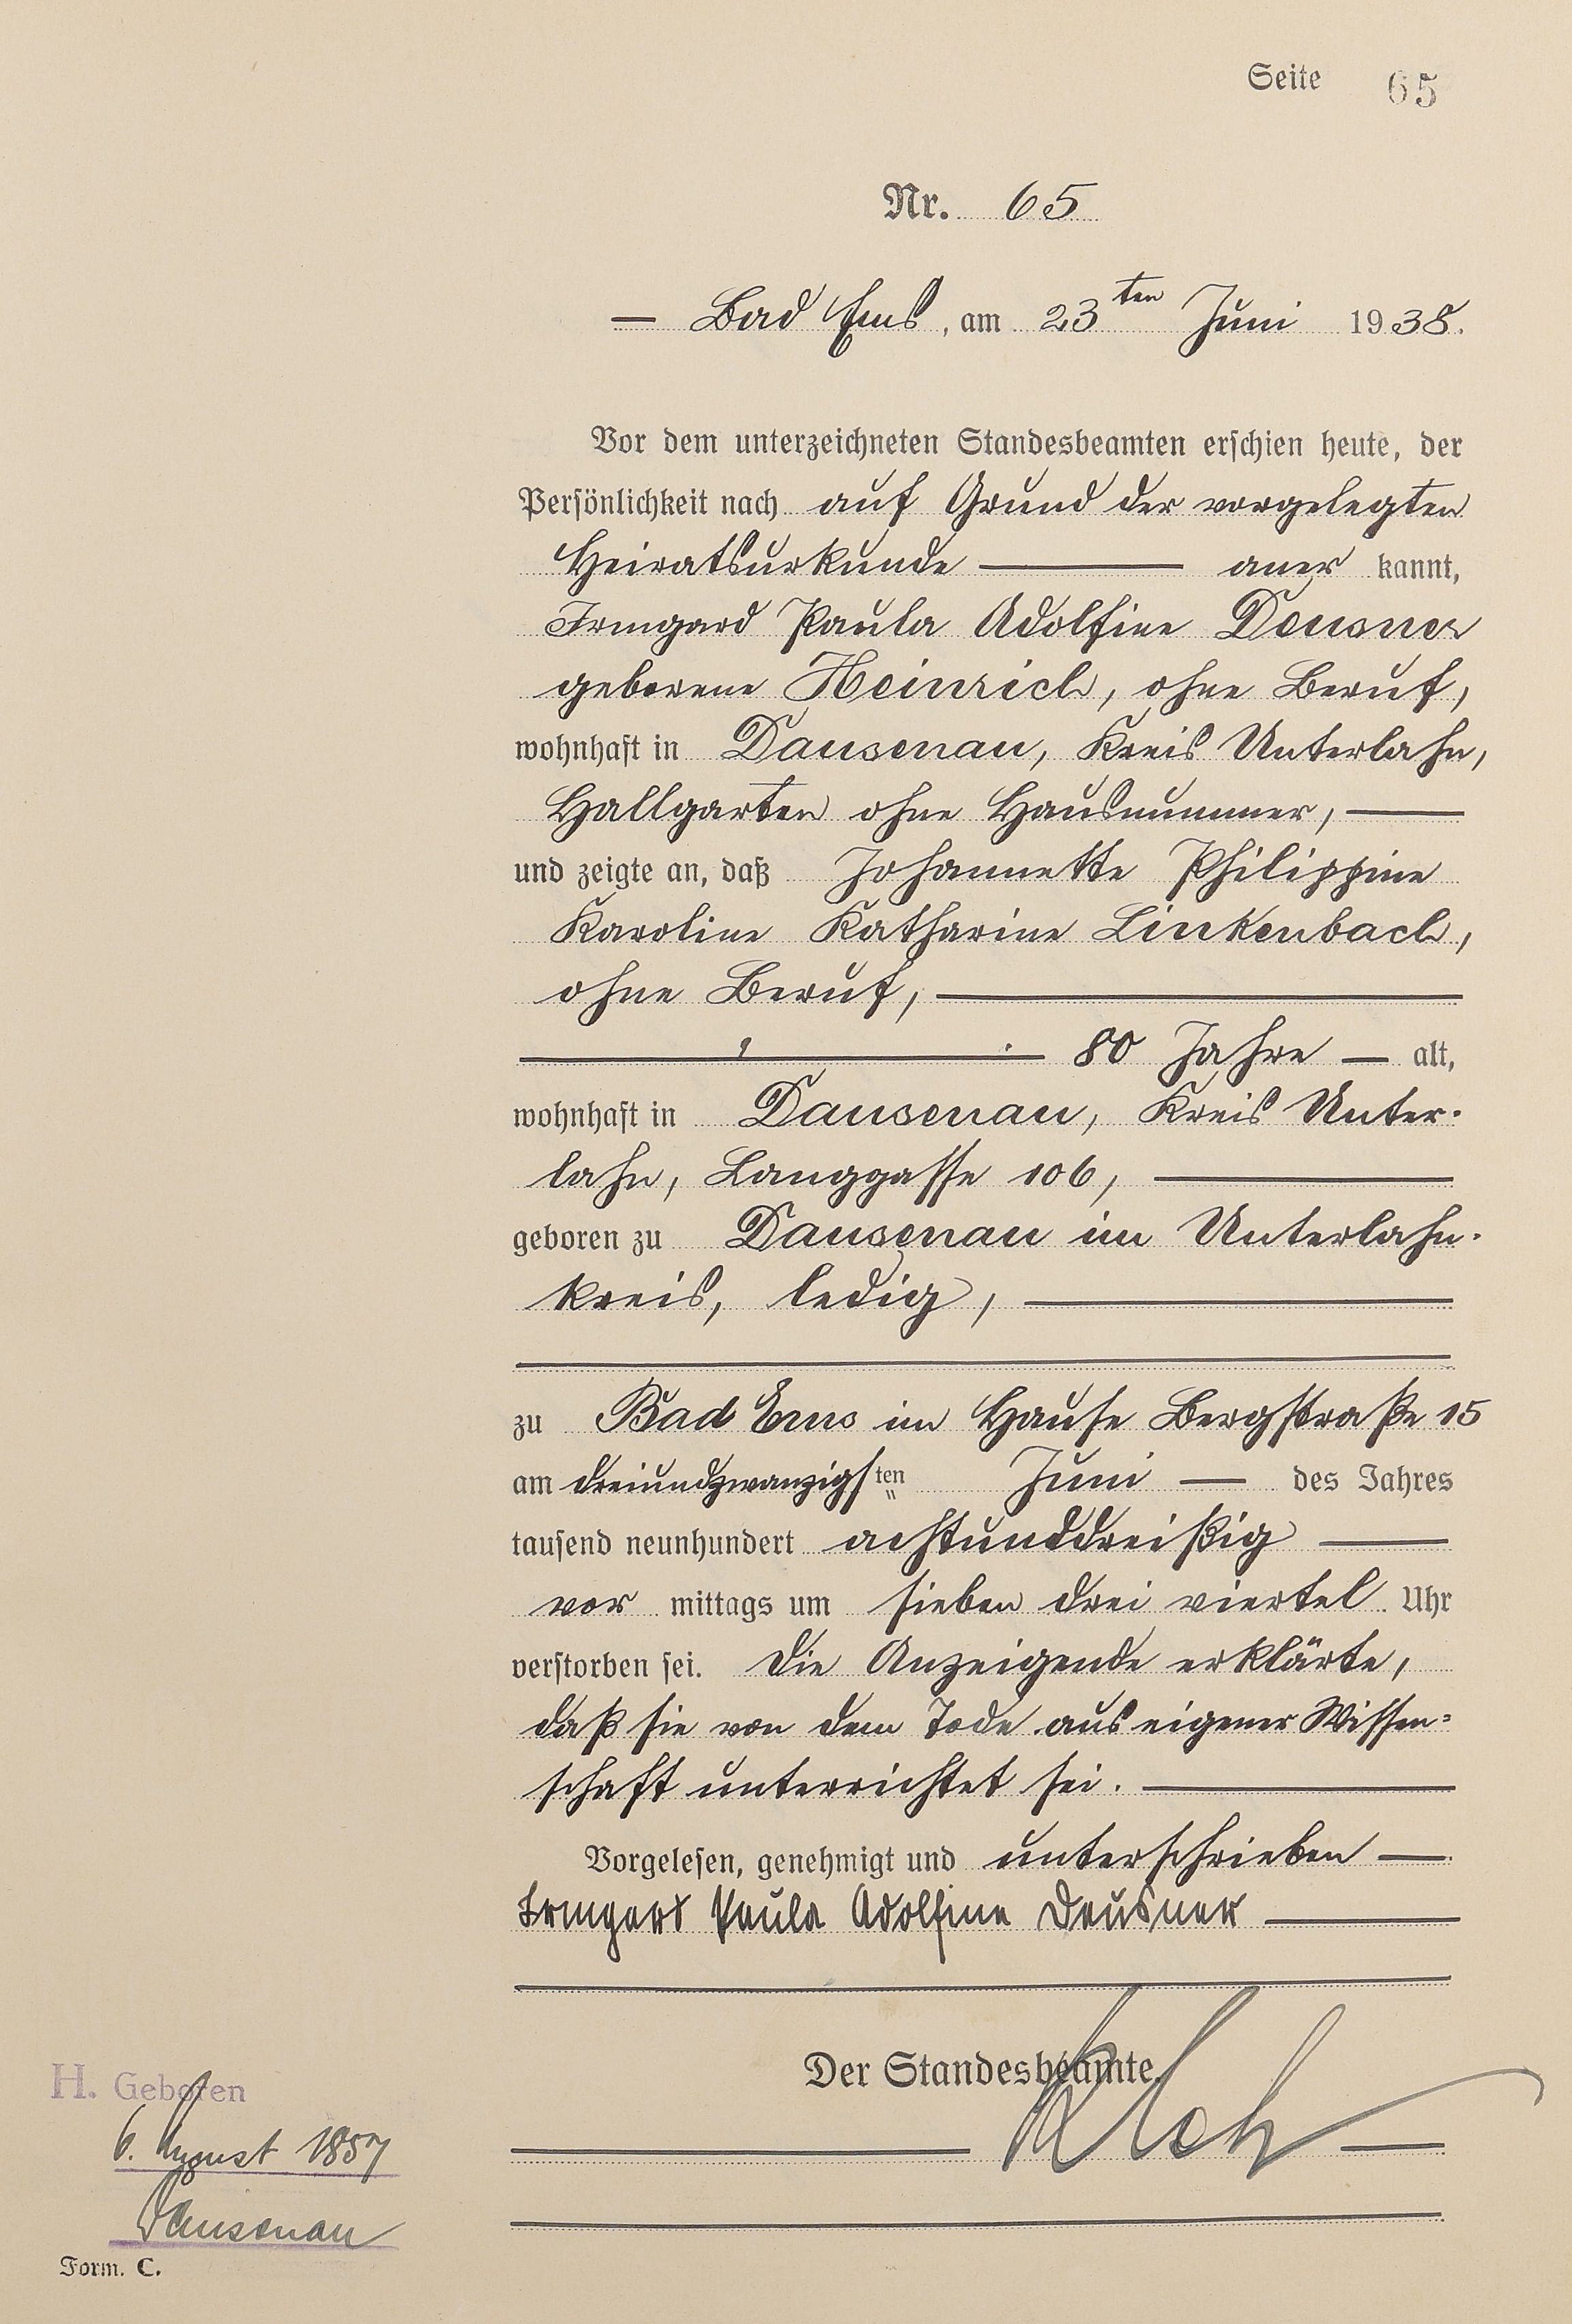 Seite 65
Nr. 65
— Bad Ems, am 23ten Juni 1938.
Vor dem unterzeichneten Standesbeamten erschien heute, der
Persönlichkeit nach auf Grund der vorgelegten
Heiratsurkunde — aner kannt,
Irmgard Paula Adolfine Deusner
geborene Heinrich, ohne Beruf,
wohnhaft in Dausenau, Kreis Unterlahn,
Hallgarten ohne Hausnummer, —
und zeigte an, daß Johannette Philippine
Karoline Katharine Linkenbach,
ohne Beruf, —
— 80 Jahre — alt,
wohnhaft in Dausenau, Kreis Unter-
lahn, Langgasse 106, —
geboren zu Dausenau im Unterlahn-
kreis, ledig, —
zu Bad Ems im Hause Bergstraße 15
am dreiundzwanzigsten Juni — des Jahres
tausend neunhundert achtunddreißig —
vor mittags um sieben drei viertel Uhr
verstorben sei. Die Anzeigende erklärte,
daß sie von dem Tode aus eigener Wissen=
schaft unterrichtet sei. —
Vorgelesen, genehmigt und unterschrieben —
Irmgard Paula Adolfine Deusner —
Der Standesbeamte.
H. Geboren
6. August 1857
Dausenau
Form. C.